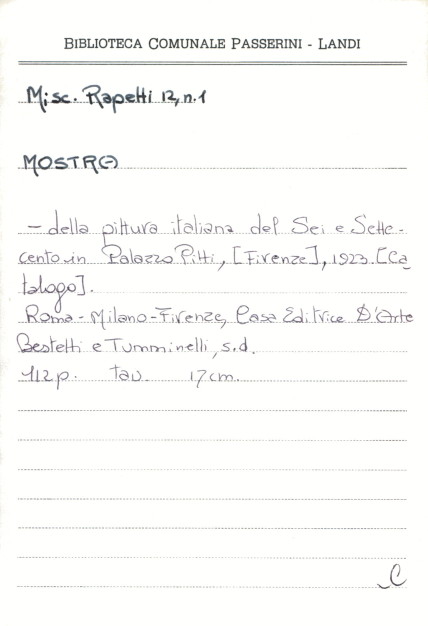 BIBLIOTECA COMUNALE PASSERINI - LANDI
Misc. Rapetti 12, n.1
MOSTRA
- della pittura italiana del Sei e Sette-
cento in Palazzo Pitti, [Firenze], 1923. [Ca
talogo].
Roma - Milano - Firenze, Casa Editrice D'Arte
Bestetti e Tumminelli, s.d.
112 p. tav. 17 cm.
C